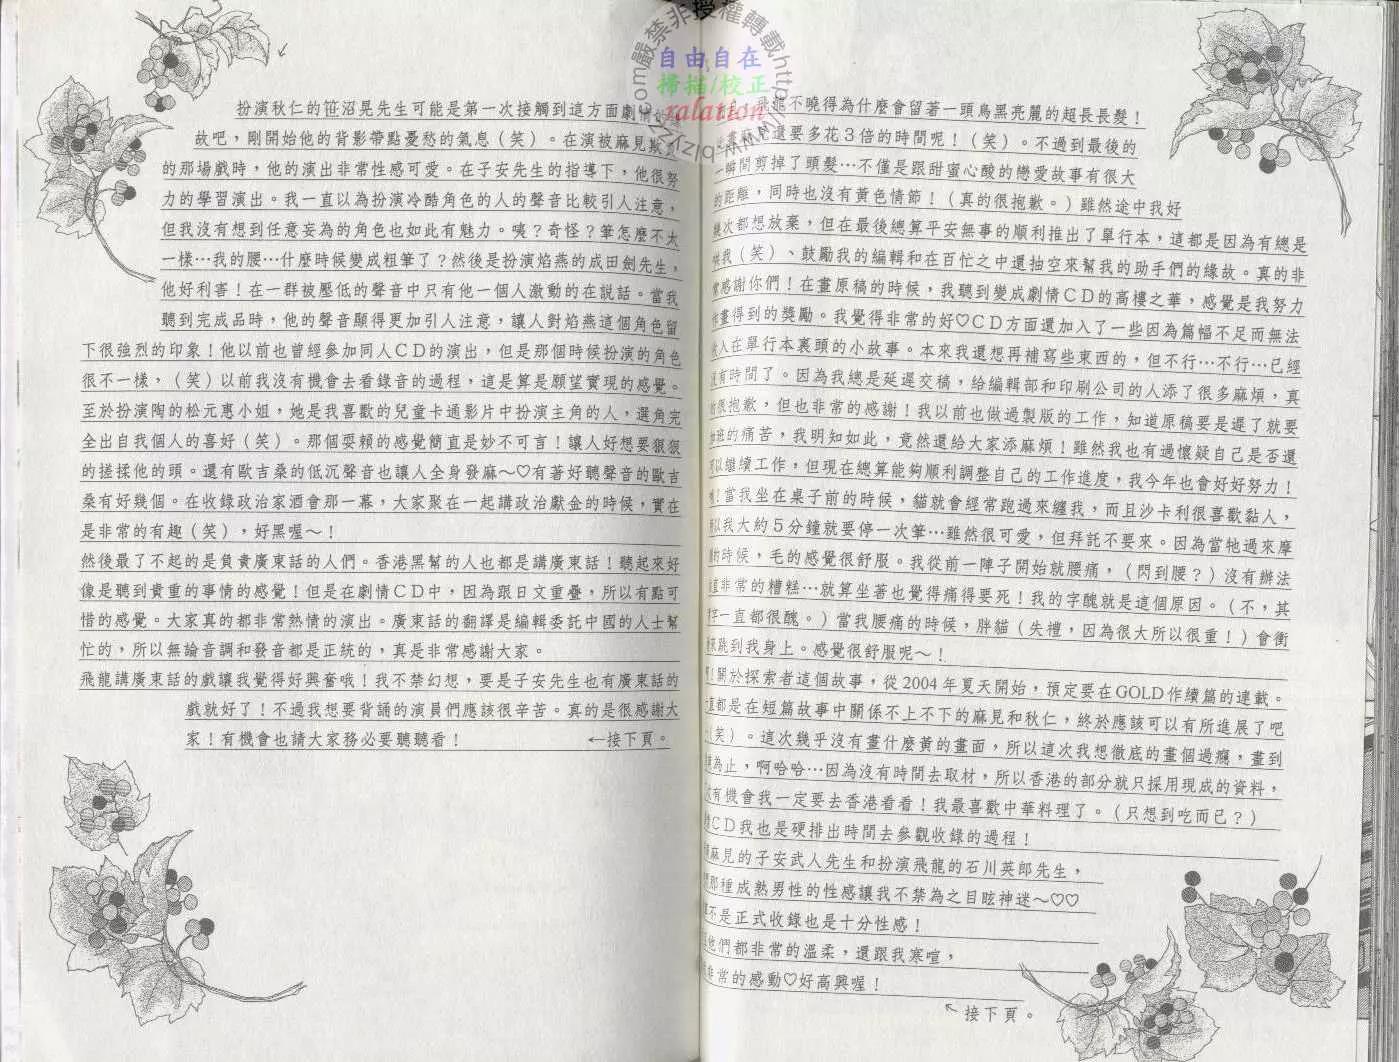 嚴禁非授權轉載http
自由自在
掃描/校正
ralation
飛龍不曉得為什麼會留著一頭烏黑亮麗的超長長髮！
還要多花３倍的時間呢！（笑）。不過到最後的
一瞬間剪掉了頭髮…不僅是跟甜蜜心酸的戀愛故事有很大
的距離，同時也沒有黃色情節！（真的很抱歉。）雖然途中我好
幾次都想放棄，但在最後總算平安無事的順利推出了單行本，這都是因為有總是
哄我（笑）、鼓勵我的編輯和在百忙之中還抽空來幫我的助手們的緣故。真的非
常感謝你們！在畫原稿的時候，我聽到變成劇情ＣＤ的高樓之華，感覺是我努力
作畫得到的獎勵。我覺得非常的好♡ＣＤ方面還加入了一些因為篇幅不足而無法
放入在單行本裏頭的小故事。本來我還想再補寫些東西的，但不行…不行…已經
沒有時間了。因為我總是延遲交稿，給編輯部和印刷公司的人添了很多麻煩，真
的很抱歉，但也非常的感謝！我以前也做過製版的工作，知道原稿要是遲了就要
加班的痛苦，我明知如此，竟然還給大家添麻煩！雖然我也有過懷疑自己是否還
可以繼續工作，但現在總算能夠順利調整自己的工作進度，我今年也會好好努力！
！當我坐在桌子前的時候，貓就會經常跑過來纏我，而且沙卡利很喜歡黏人，
所以我大約５分鐘就要停一次筆…雖然很可愛，但拜託不要來。因為當牠過來摩
的時候，毛的感覺很舒服。我從前一陣子開始就腰痛，（閃到腰？）沒有辦法
直非常的糟糕…就算坐著也覺得痛得要死！我的字醜就是這個原因。（不，其
一直都很醜。）當我腰痛的時候，胖貓（失禮，因為很大所以很重！）會衝
來跳到我身上。感覺很舒服呢～！
！關於探索者這個故事，從2004年夏天開始，預定要在GOLD作續篇的連載。
直都是在短篇故事中關係不上不下的麻見和秋仁，終於應該可以有所進展了吧
（笑）。這次幾乎沒有畫什麼黃的畫面，所以這次我想徹底的畫個過癮，畫到
為止，啊哈哈…因為沒有時間去取材，所以香港的部分就只採用現成的資料，
有機會我一定要去香港看看！我最喜歡中華料理了。（只想到吃而已？）
ＣＤ我也是硬排出時間去參觀收錄的過程！
麻見的子安武人先生和扮演飛龍的石川英郎先生，
那種成熟男性的性感讓我不禁為之目眩神迷～♡♡
不是正式收錄也是十分性感！
他們都非常的溫柔，還跟我寒喧，
非常的感動♡好高興喔！
←接下頁。
扮演秋仁的笹沼晃先生可能是第一次接觸到這方面劇情的
故吧，剛開始他的背影帶點憂愁的氣息（笑）。在演被麻見欺
的那場戲時，他的演出非常性感可愛。在子安先生的指導下，他很努
力的學習演出。我一直以為扮演冷酷角色的人的聲音比較引人注意，
但我沒有想到任意妄為的角色也如此有魅力。咦？奇怪？筆怎麼不太
一樣…我的腰…什麼時候變成粗筆了？然後是扮演焰燕的成田劍先生，
他好利害！在一群被壓低的聲音中只有他一個人激動的在說話。當我
聽到完成品時，他的聲音顯得更加引人注意，讓人對焰燕這個角色留
下很強烈的印象！他以前也曾經參加同人ＣＤ的演出，但是那個時候扮演的角色
很不一樣，（笑）以前我沒有機會去看錄音的過程，這是算是願望實現的感覺。
至於扮演陶的松元惠小姐，她是我喜歡的兒童卡通影片中扮演主角的人，選角完
全出自我個人的喜好（笑）。那個耍賴的感覺簡直是妙不可言！讓人好想要狠狠
的搓揉他的頭。還有歐吉桑的低沉聲音也讓人全身發麻～♡有著好聽聲音的歐吉
桑有好幾個。在收錄政治家酒會那一幕，大家聚在一起講政治獻金的時候，實在
是非常的有趣（笑），好黑喔～！
然後最了不起的是負責廣東話的人們。香港黑幫的人也都是講廣東話！聽起來好
像是聽到貴重的事情的感覺！但是在劇情ＣＤ中，因為跟日文重疊，所以有點可
惜的感覺。大家真的都非常熱情的演出。廣東話的翻譯是編輯委託中國的人士幫
忙的，所以無論音調和發音都是正統的，真是非常感謝大家。
飛龍講廣東話的戲讓我覺得好興奮哦！我不禁幻想，要是子安先生也有廣東話的
戲就好了！不過我想要背誦的演員們應該很辛苦。真的是很感謝大
家！有機會也請大家務必要聽聽看！
←接下頁。